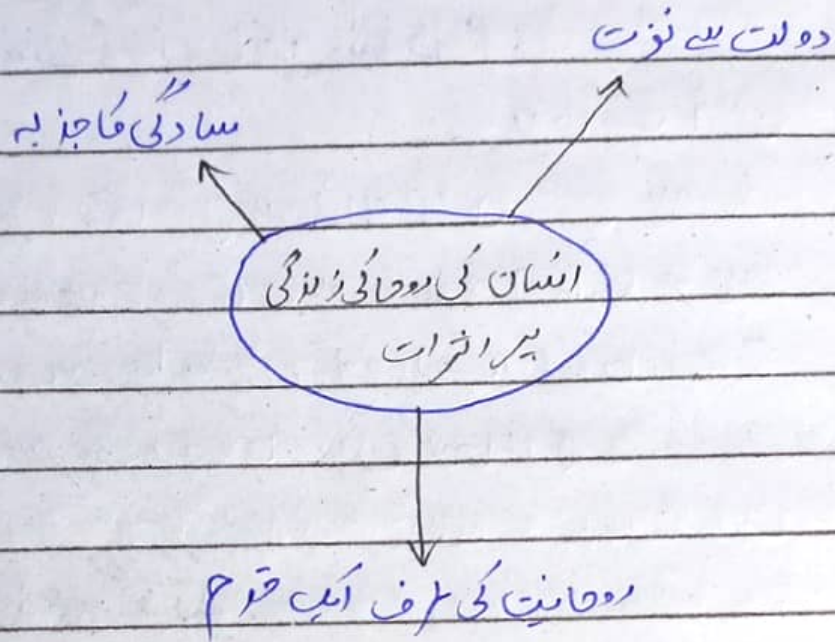 دولت سے نفرت
سادگی کا جذبہ
انسان کی روحانی زندگی
پر اثرات
روحانیت کی طرف ایک قدم